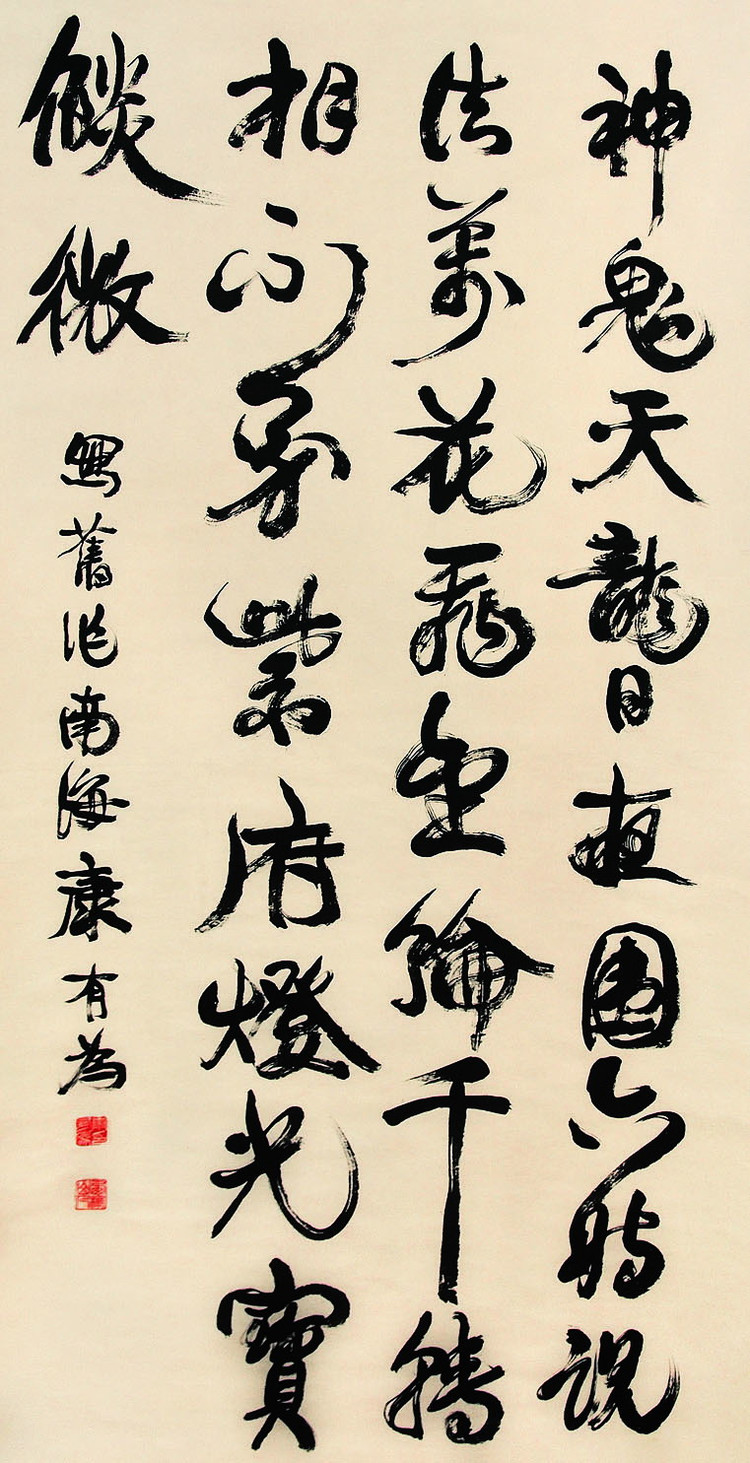 神鬼天龍日夜圍六時說
法萬花飛金輪千轉
相紫府燈光寶
燄微
寫舊作南海康有為